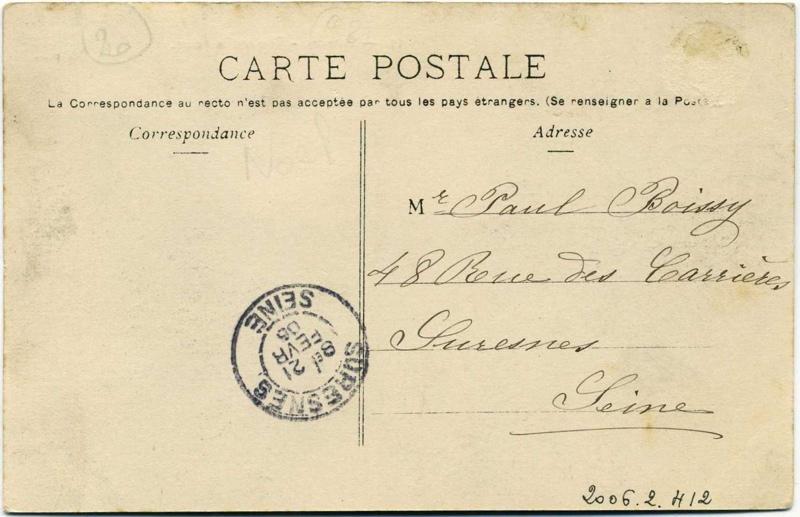 20
CARTE POSTALE
La Correspondance au recto n'est pas acceptée par tous les pays étrangers. (Se renseigner a la Poste
Correspondance
Adresse
Mr Paul Boissy
48 Rue des Carrières
Suresnes
Seine
SURESNES
SEINE
21
FEVR
2006.2.412